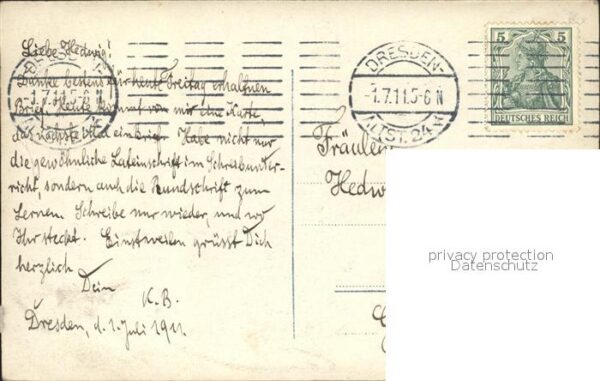 Liebe Hedwig!
Danke bestens für heute Freitag erhaltnen
Brief. Heute kommt von mir eine Karte,
das nächste Mal ein Brief. Habe nicht nur
die gewöhnliche Lateinschrift im Schreibunter-
richt, sondern auch die Rundschrift zum
Lernen. Schreibe nur wieder, und wo
Ihr steckt. Einstweilen grüsst Dich
herzlich
Dein
K. B.
Dresden, d. 1. Juli 1911.
DRESDEN-
-1.7.11.5-6 N
ALTST. 24
DRESDEN-
1.7.11.5-6 N
5 5
DEUTSCHES REICH
Fräulein
Hedw
privacy protection
Datenschutz